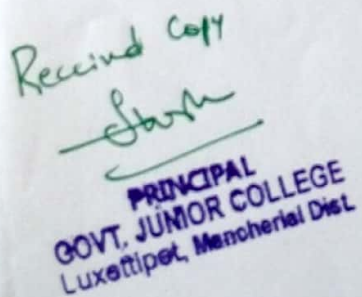 Received Copy
PRINCIPAL
GOVT. JUNIOR COLLEGE
Luxettipet, Mancherial Dist.